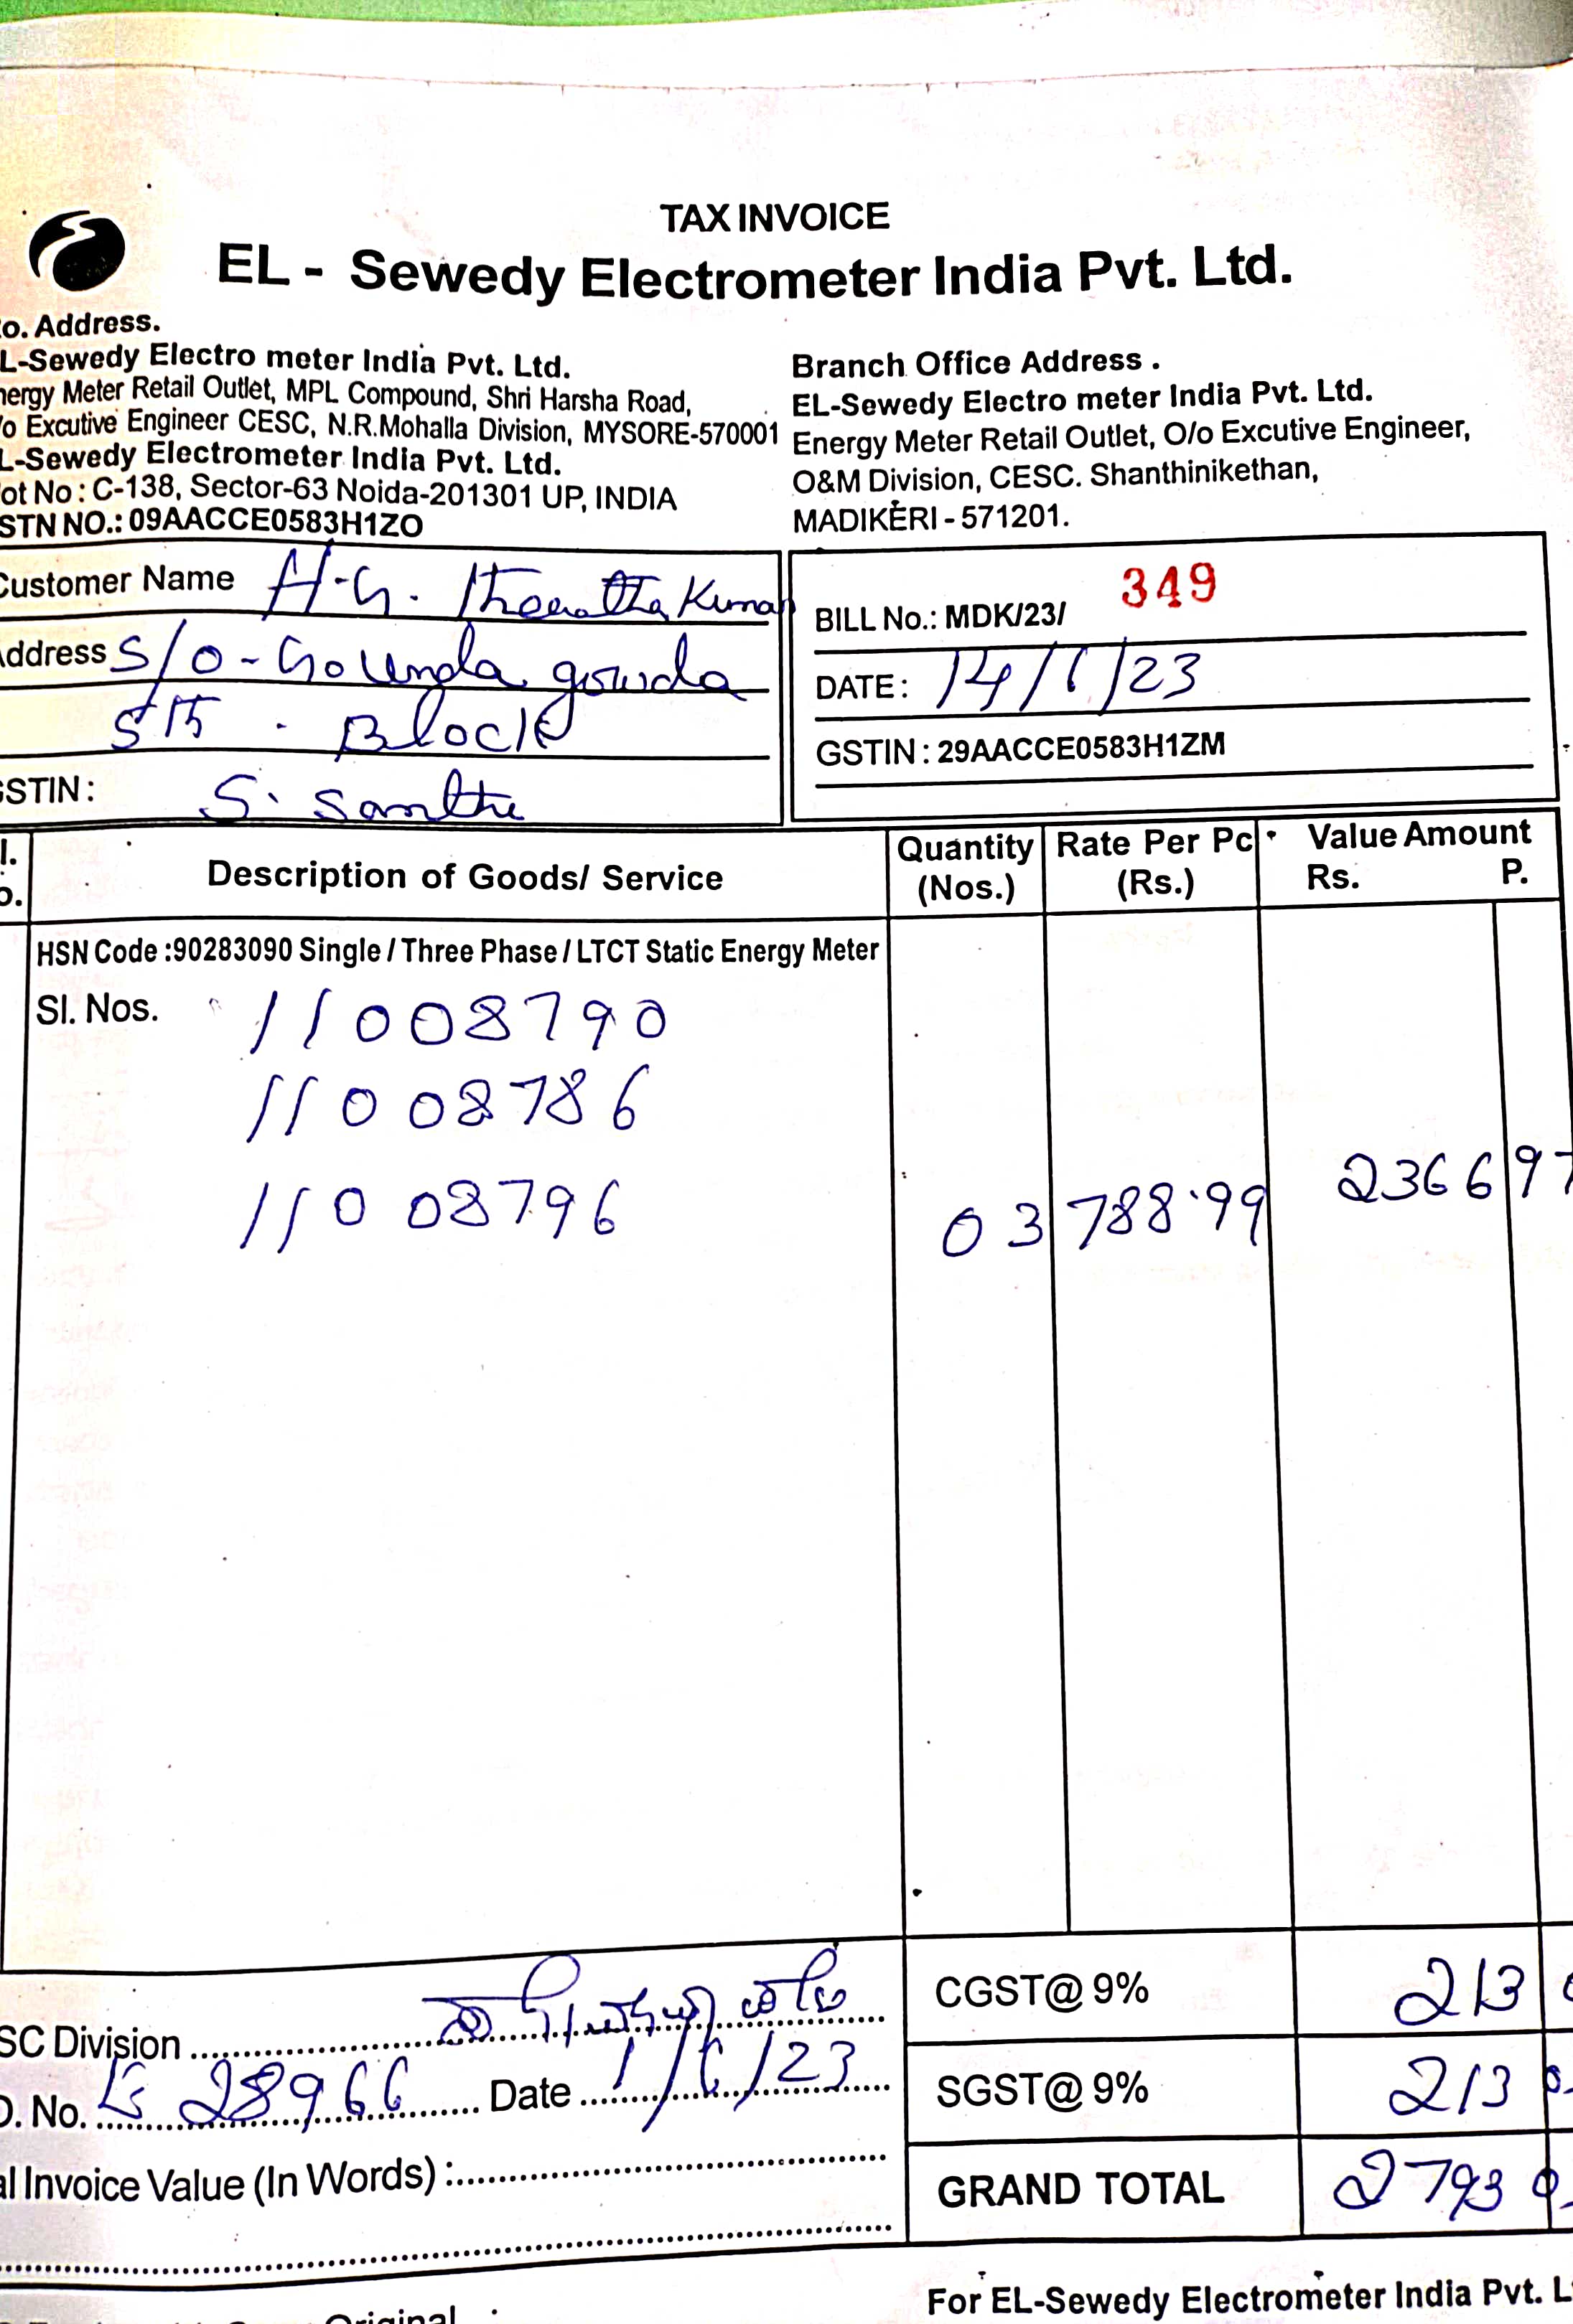 TAX INVOICE
EL - Sewedy Electrometer India Pvt. Ltd.
o. Address.
L-Sewedy Electro meter India Pvt. Ltd.
nergy Meter Retail Outlet, MPL Compound, Shri Harsha Road,
/o Excutive Engineer CESC, N.R.Mohalla Division, MYSORE-570001
L-Sewedy Electrometer India Pvt. Ltd.
ot No : C-138, Sector-63 Noida-201301 UP, INDIA
STN NO.: 09AACCE0583H1ZO
Branch Office Address .
EL-Sewedy Electro meter India Pvt. Ltd.
Energy Meter Retail Outlet, O/o Excutive Engineer,
O&M Division, CESC. Shanthinikethan,
MADIKERI - 571201.
Customer Name H.G. Kumar
Address S/O - gowda
5th . Block
GSTIN : S. Santhe
BILL No.: MDK/23/ 349
DATE : 14/6/23
GSTIN : 29AACCE0583H1ZM
l. Description of Goods/ Service Quantity (Nos.) Rate Per Pc (Rs.) Value Amount Rs. P.
o.
HSN Code :90283090 Single / Three Phase / LTCT Static Energy Meter
Sl. Nos. 11008790
11008786
11008796 03 788.99 2366 97
SC Division
CGST@ 9% 213
O. No. 28966 Date 1/6/23
SGST@ 9% 213
al Invoice Value (In Words) :
GRAND TOTAL 2793
For EL-Sewedy Electrometer India Pvt. L
Original